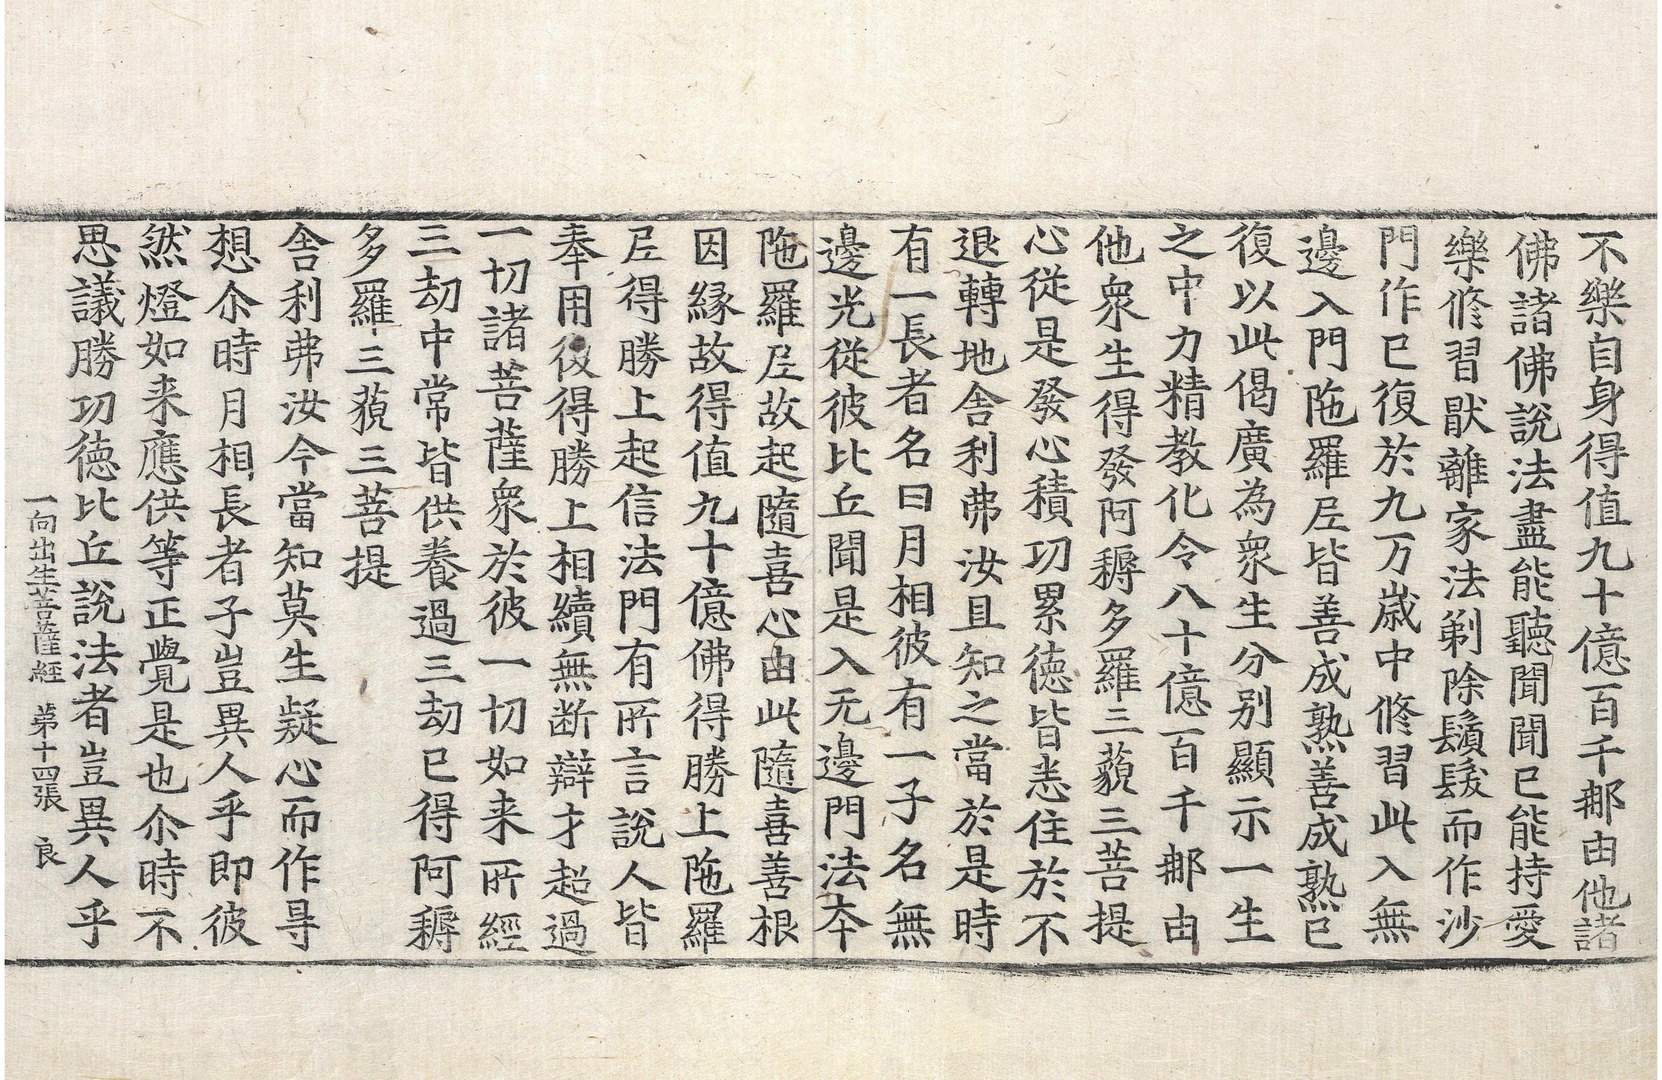 不樂自身得值九十億百千那由他諸
佛諸佛說法盡能聽聞聞已能持愛
樂修習猒離家法剃除鬚髮而作沙
門作已復於九万歳中修習此入無
邊入門陁羅𡰱皆善成熟善成熟已
復以此偈廣為衆生分别顯示一生
之中力精教化令八十億百千那由
他衆生得發阿耨多羅三藐三菩提
心從是發心積功累徳皆悉住於不
退轉地舎利弗汝且知之當於是時
有一長者名曰月相彼有一子名無
邊光從彼比丘聞是入无邊門法夲
陁羅𡰱故起隨喜心由此隨喜善根
因縁故得值九十億佛得勝上陁羅
𡰱得勝上起信法門有所言説人皆
奉用後得勝上相續無断辯才超過
一切諸菩薩衆於彼一切如来所經
三劫中常皆供養過三劫已得阿耨
多羅三藐三菩提
舎利弗汝今當知莫生疑心而作㝵
想尒時月相長者子豈異人乎即彼
然燈如来應供等正覺是也尒時不
思議勝功徳比丘説法者豈異人乎
一向出生菩薩經　苐十四張　良